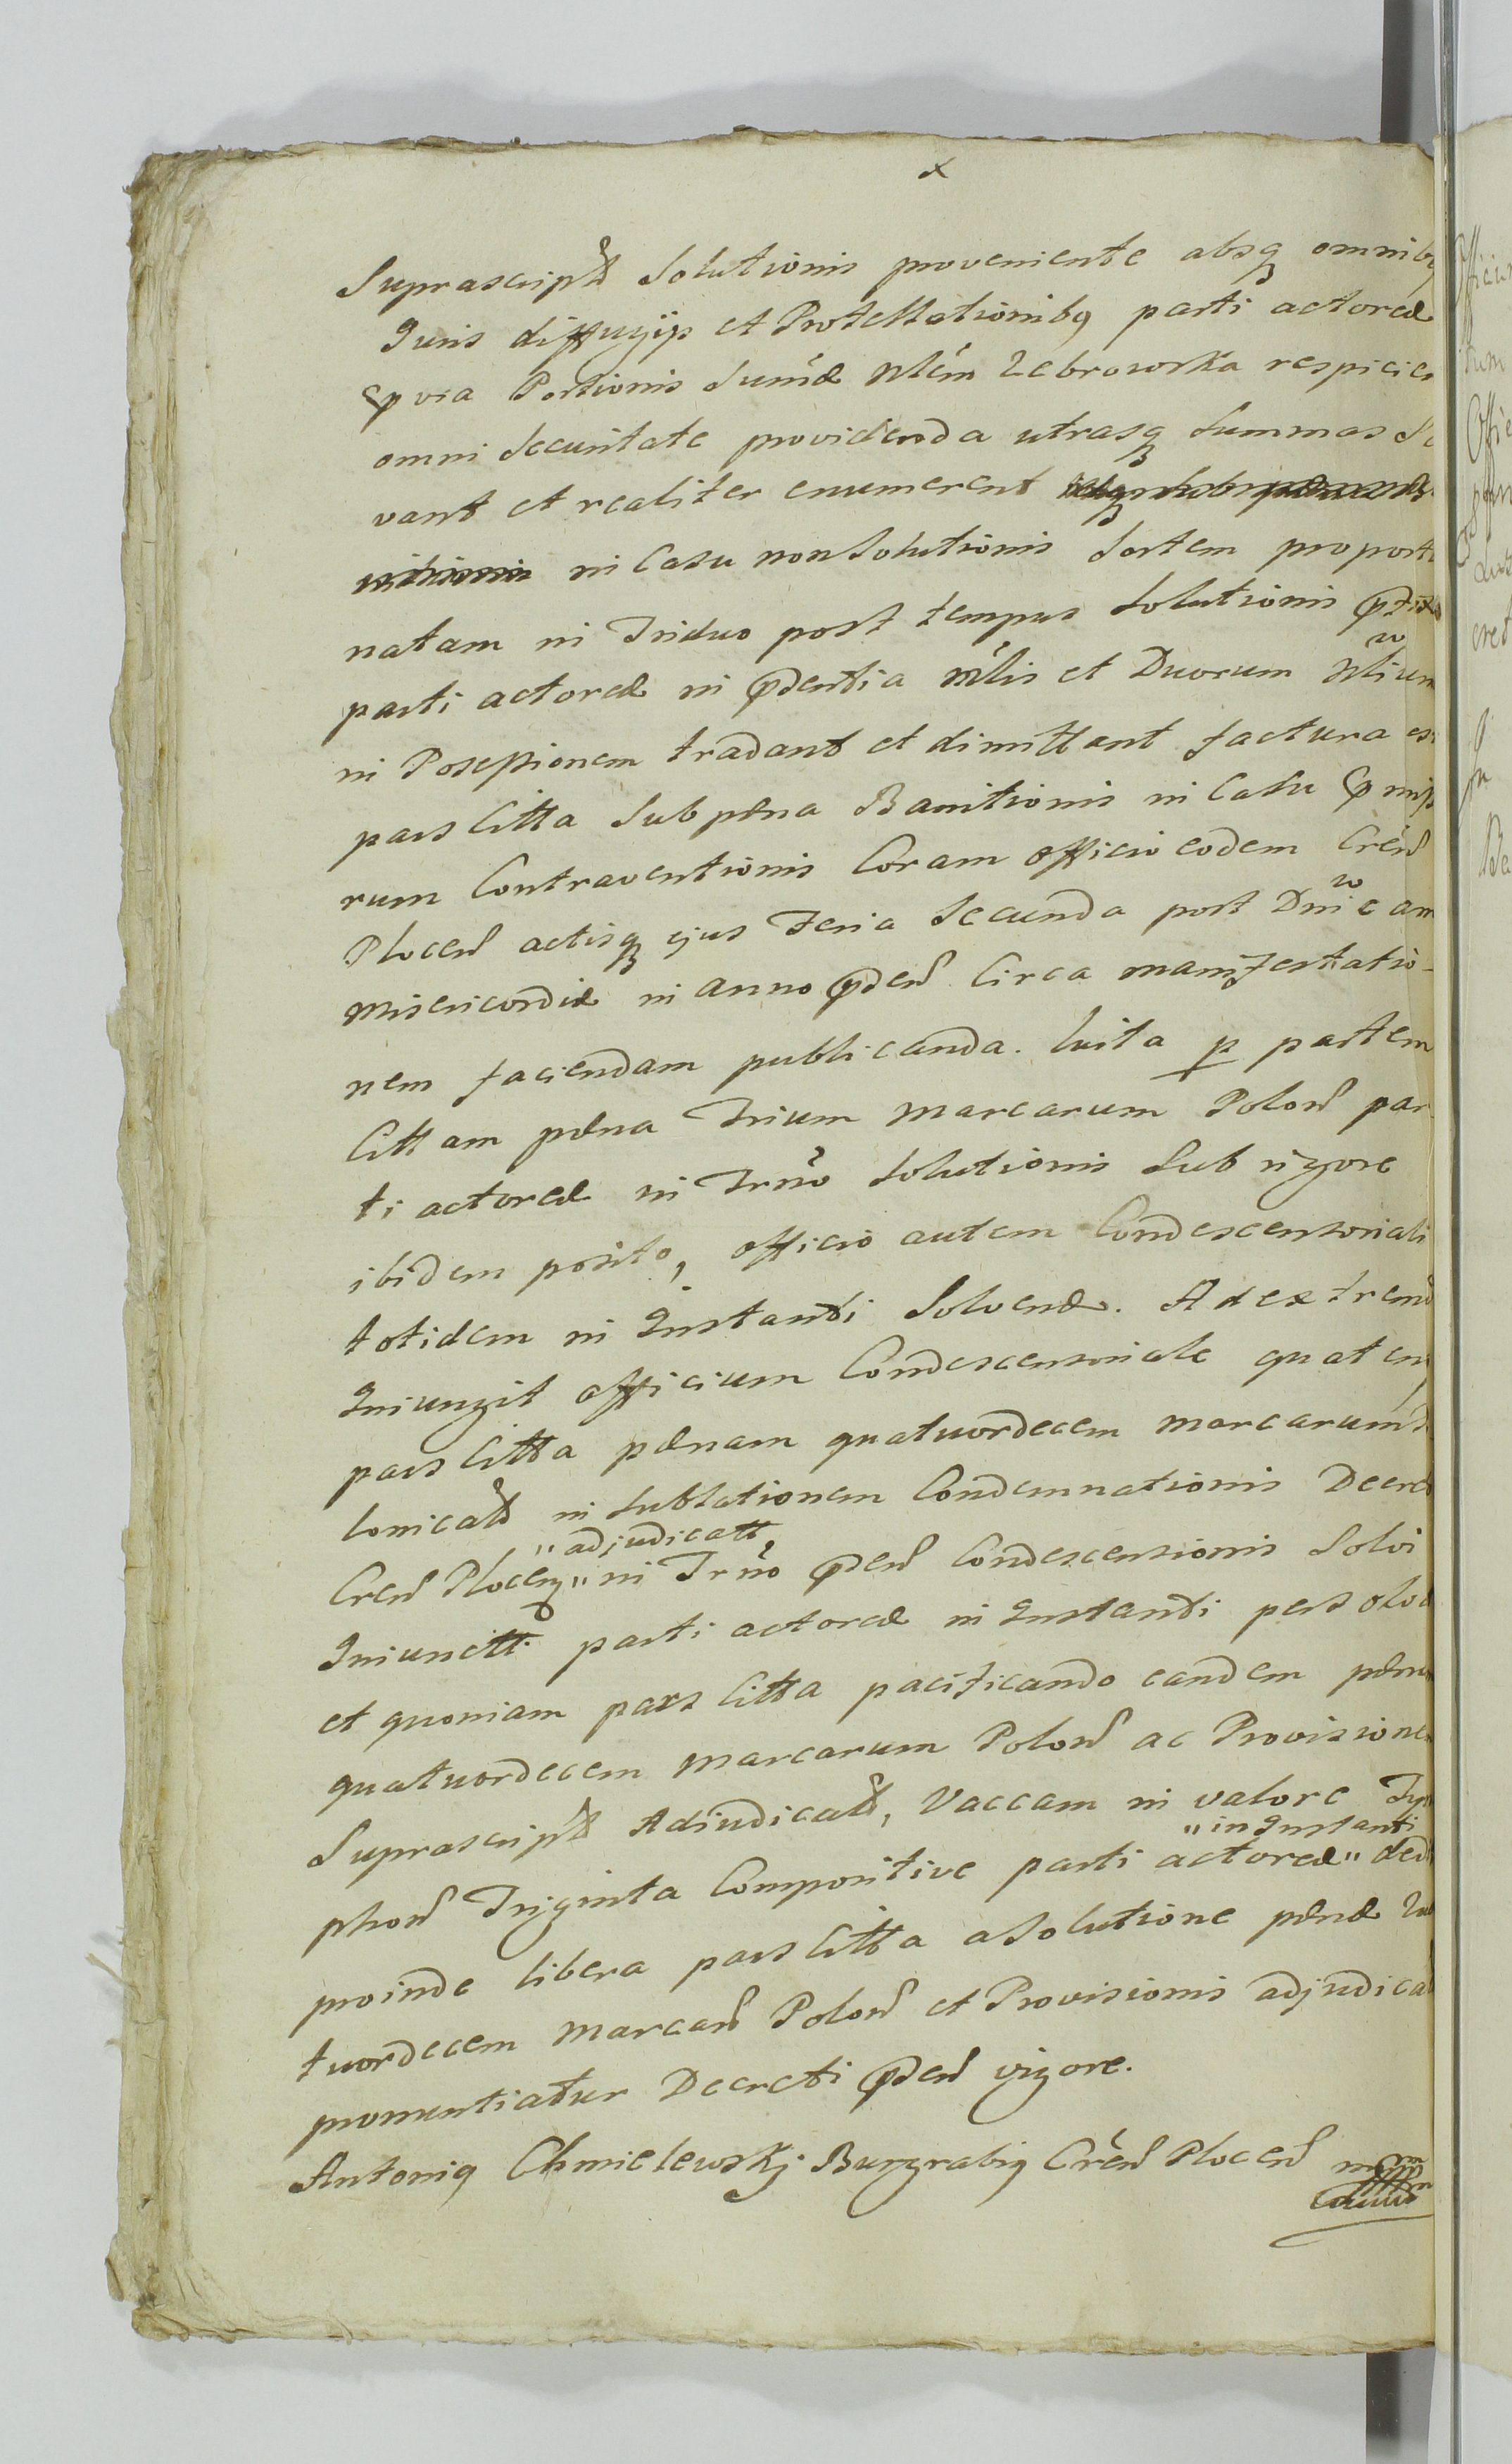 Suprascript Solutionis proveniente absq omnibq
Juris diffugijs et Protestationibq parti actoreæ
qvia Portionis Sumæ Nlem Zebrowska respicien
omni Securitate providenda utrasq Summas Sol
vant et realiter enumerent
in Casu non Solutionis Sortem proportio
natam in Triduo post tempus Solutionis
parti actoreæ in pdentia Mlis et Duorum Nlium
in Possessionem tradant et dimittant factura
pars Citta Sub pæna Banitionis in Casu pmisso
rum Contraventionis Coram officio eodem Cren
Plocen actisq ejus Feria Secunda post Dnicam
Misericordiæ in anno pden Circa manifestatio-
nem faciendam publicanda. luita p partem
Cittam pæna Trium Marcarum Polon par
ti actoreæ in Trno Solutionis Sub rigore
ibidem posito, officio autem Condescensoriali
totidem in Instanti Solvenæ. Ad extremum
Iniungit officium Condescensoriale quatenq
pars Citta pænam quatuordecem marcarum
lonicat in Sublationem Condemnationis Decret
Cren Plocen "adjudicatt," in Trno pden Condescensionis Solvi
Iniunctt parti actoreæ in Instanti persolvat
et quoniam pars Citta pacificando eandem pænam
quatuordecem Marcarum Polon ac Provisionem
Suprascript Adiudicatt, Vaccam in valore Tym
phon Triginta Compositive parti actoreæ "in Instanti" dedit
proinde libera pars Citta a Solutione pænæ
tuordecem Marcar Polon et Provisionis adjudicat
pronuntiatur Decreti pden vigore.
Antoniq Chmielewskj Burgrabiq Cren Plocen